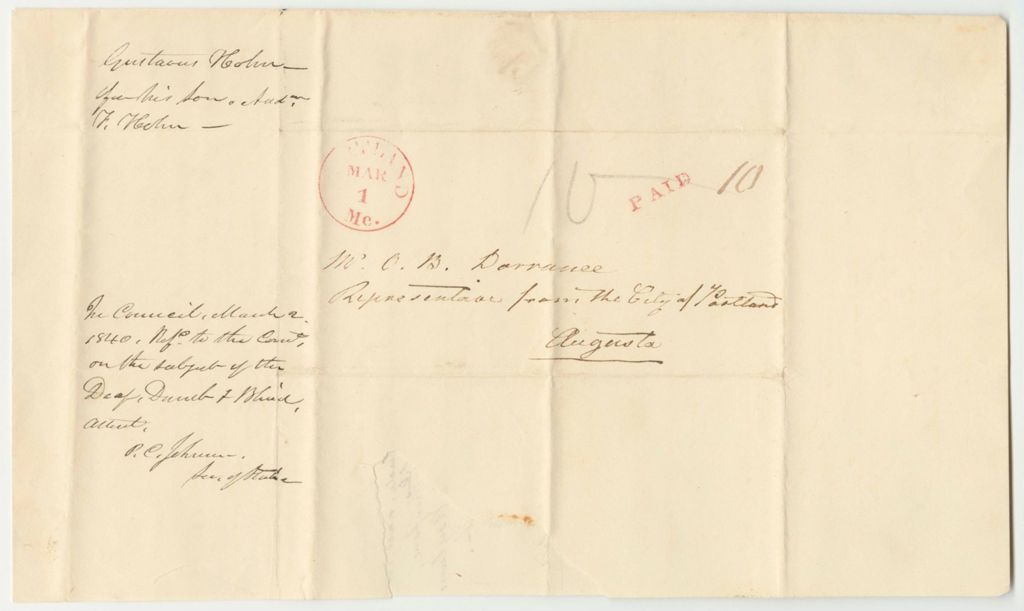 Gustavus Holm—
for his son, And.w
F. Holm —
PORTLAND
MAR
1
Me.
10
PAID
10
Mr. O. B. Dorrance
Representative from the City of Portland
Augusta
In Council, March 2
1840, Refd. to the Comt.
on the subject of the
Deaf, Dumb & Blind,
attest,
P. C. Johnson.
Sec. of State